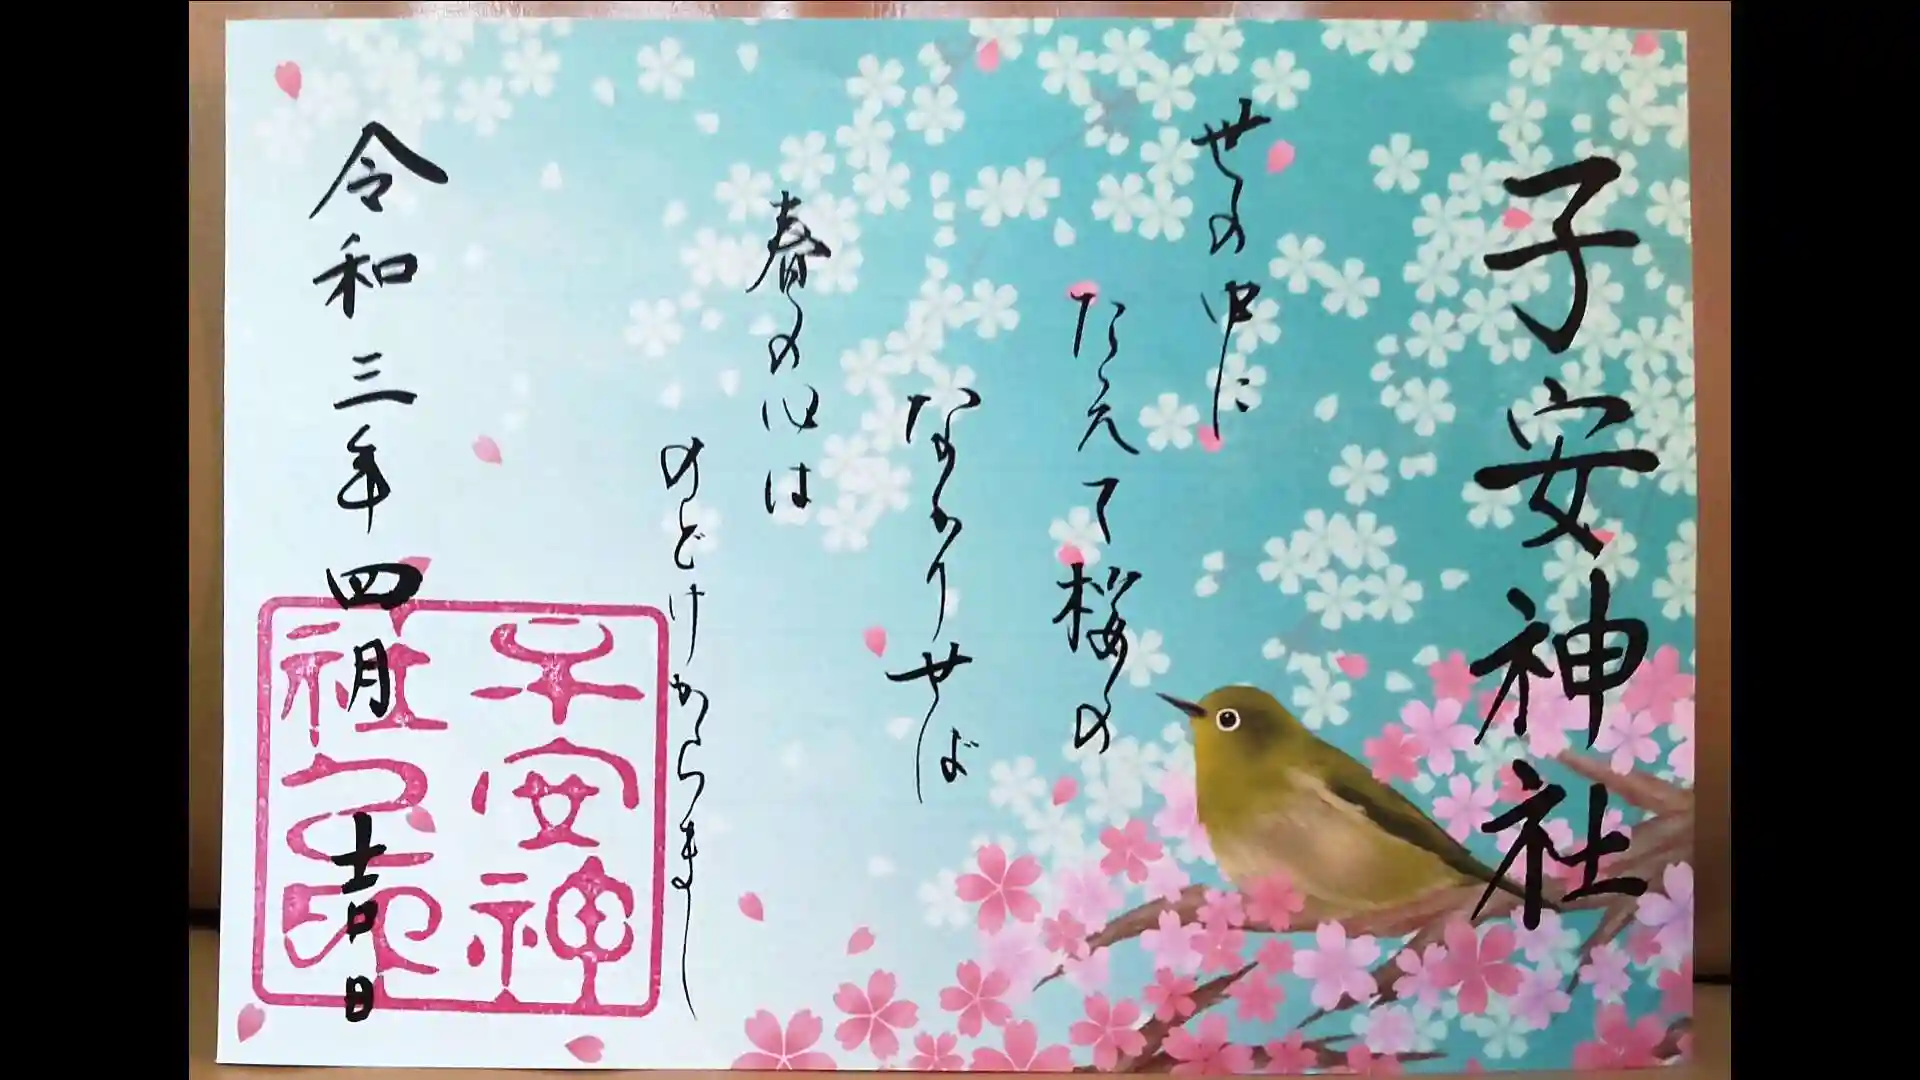 子安神社
世の中に
たえて桜の
なかりせば
春の心は
のどけからまし
令和三年四月吉日
子安神社之印